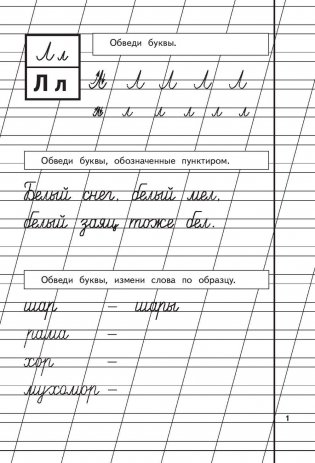 Л л
Обведи буквы.
Л л
Л Л Л Л Л
л л л л л л
Обведи буквы, обозначенные пунктиром.
Белый снег, белый мел,
белый заяц тоже бел.
Обведи буквы, измени слова по образцу.
шар – шары
рама –
хор –
мухомор –
1